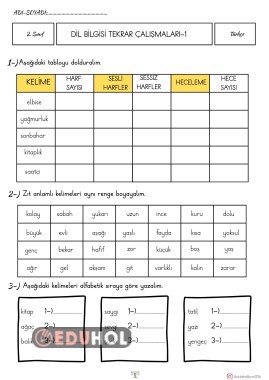 ADI-SOYADI:
2. Sınıf
DİL BİLGİSİ TEKRAR ÇALIŞMALARI-1
Türkçe
1-) Aşağıdaki tabloyu dolduralım.
KELİME HARF SAYISI SESLİ HARFLER SESSİZ HARFLER HECELEME HECE SAYISI
elbise
yağmurluk
sonbahar
kitaplık
saatçi
2-) Zıt anlamlı kelimeleri aynı renge boyayalım.
kolay sabah yukarı uzun ince kuru dolu
büyük evli aşağı yaşlı fayda kısa yoksul
genç bekar hafif zor küçük boş yaş
ağır gel akşam git varlıklı kalın zarar
3-) Aşağıdaki kelimeleri alfabetik sıraya göre yazalım.
kitap 1-) saygı 1-) tatil 1-)
ağaç 2-) 2-) yazı 2-)
3-) 3-) yengeç 3-)
EDUHOL